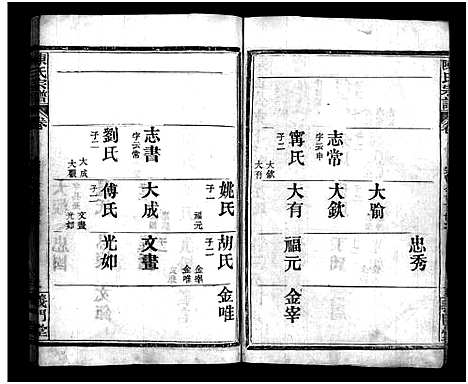 陳氏宗譜
卷
忠秀
大瑜
志常
字云申
大欽
甯氏
子二
大欽
大有
大有
福元
金宰
姚氏
子一
福元
胡氏
子二
金宰
金唯
金唯
志書
字云常
大成
文畫
劉氏
子二
大成
大觀
傅氏
子二
文畫
光如
光如
陳氏宗譜
卷
義門堂